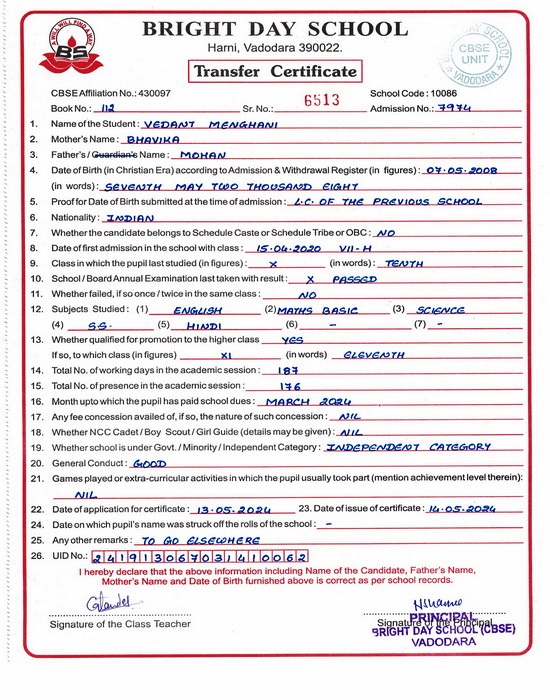 A WILL WILL FIND A WAY
BS
BRIGHT DAY SCHOOL
Harni, Vadodara 390022.
Transfer Certificate
DAY SCHOOL
CBSE
UNIT
VADODARA
CBSE Affiliation No.: 430097 School Code : 10086
Book No.: 112 Sr. No.: 6513 Admission No.: 7974
1. Name of the Student : VEDANT MENGHANI
2. Mother's Name : BHAVIKA
3. Father's / Guardian's Name : MOHAN
4. Date of Birth (in Christian Era) according to Admission & Withdrawal Register (in figures) : 07.05.2008
(in words) : SEVENTH MAY TWO THOUSAND EIGHT
5. Proof for Date of Birth submitted at the time of admission : L.C. OF THE PREVIOUS SCHOOL
6. Nationality : INDIAN
7. Whether the candidate belongs to Schedule Caste or Schedule Tribe or OBC : NO
8. Date of first admission in the school with class : 15.04.2020 VII-H
9. Class in which the pupil last studied (in figures) : X (in words) : TENTH
10. School / Board Annual Examination last taken with result : X PASSED
11. Whether failed, if so once / twice in the same class : NO
12. Subjects Studied : (1) ENGLISH (2) MATHS BASIC (3) SCIENCE
(4) S.S. (5) HINDI (6) - (7) -
13. Whether qualified for promotion to the higher class YES
If so, to which class (in figures) XI (in words) ELEVENTH
14. Total No. of working days in the academic session : 187
15. Total No. of presence in the academic session : 176
16. Month upto which the pupil has paid school dues : MARCH 2024
17. Any fee concession availed of, if so, the nature of such concession : NIL
18. Whether NCC Cadet / Boy Scout / Girl Guide (details may be given) : NIL
19. Whether school is under Govt. / Minority / Independent Category : INDEPENDENT CATEGORY
20. General Conduct : GOOD
21. Games played or extra-curricular activities in which the pupil usually took part (mention achievement level therein):
NIL
22. Date of application for certificate : 13.05.2024 23. Date of issue of certificate : 14.05.2024
24. Date on which pupil's name was struck off the rolls of the school : -
25. Any other remarks : TO GO ELSEWHERE
26. UID No.: 241913067031410062
I hereby declare that the above information including Name of the Candidate, Father's Name,
Mother's Name and Date of Birth furnished above is correct as per school records.
Signature of the Class Teacher Signature of the Principal
PRINCIPAL
BRIGHT DAY SCHOOL (CBSE)
VADODARA